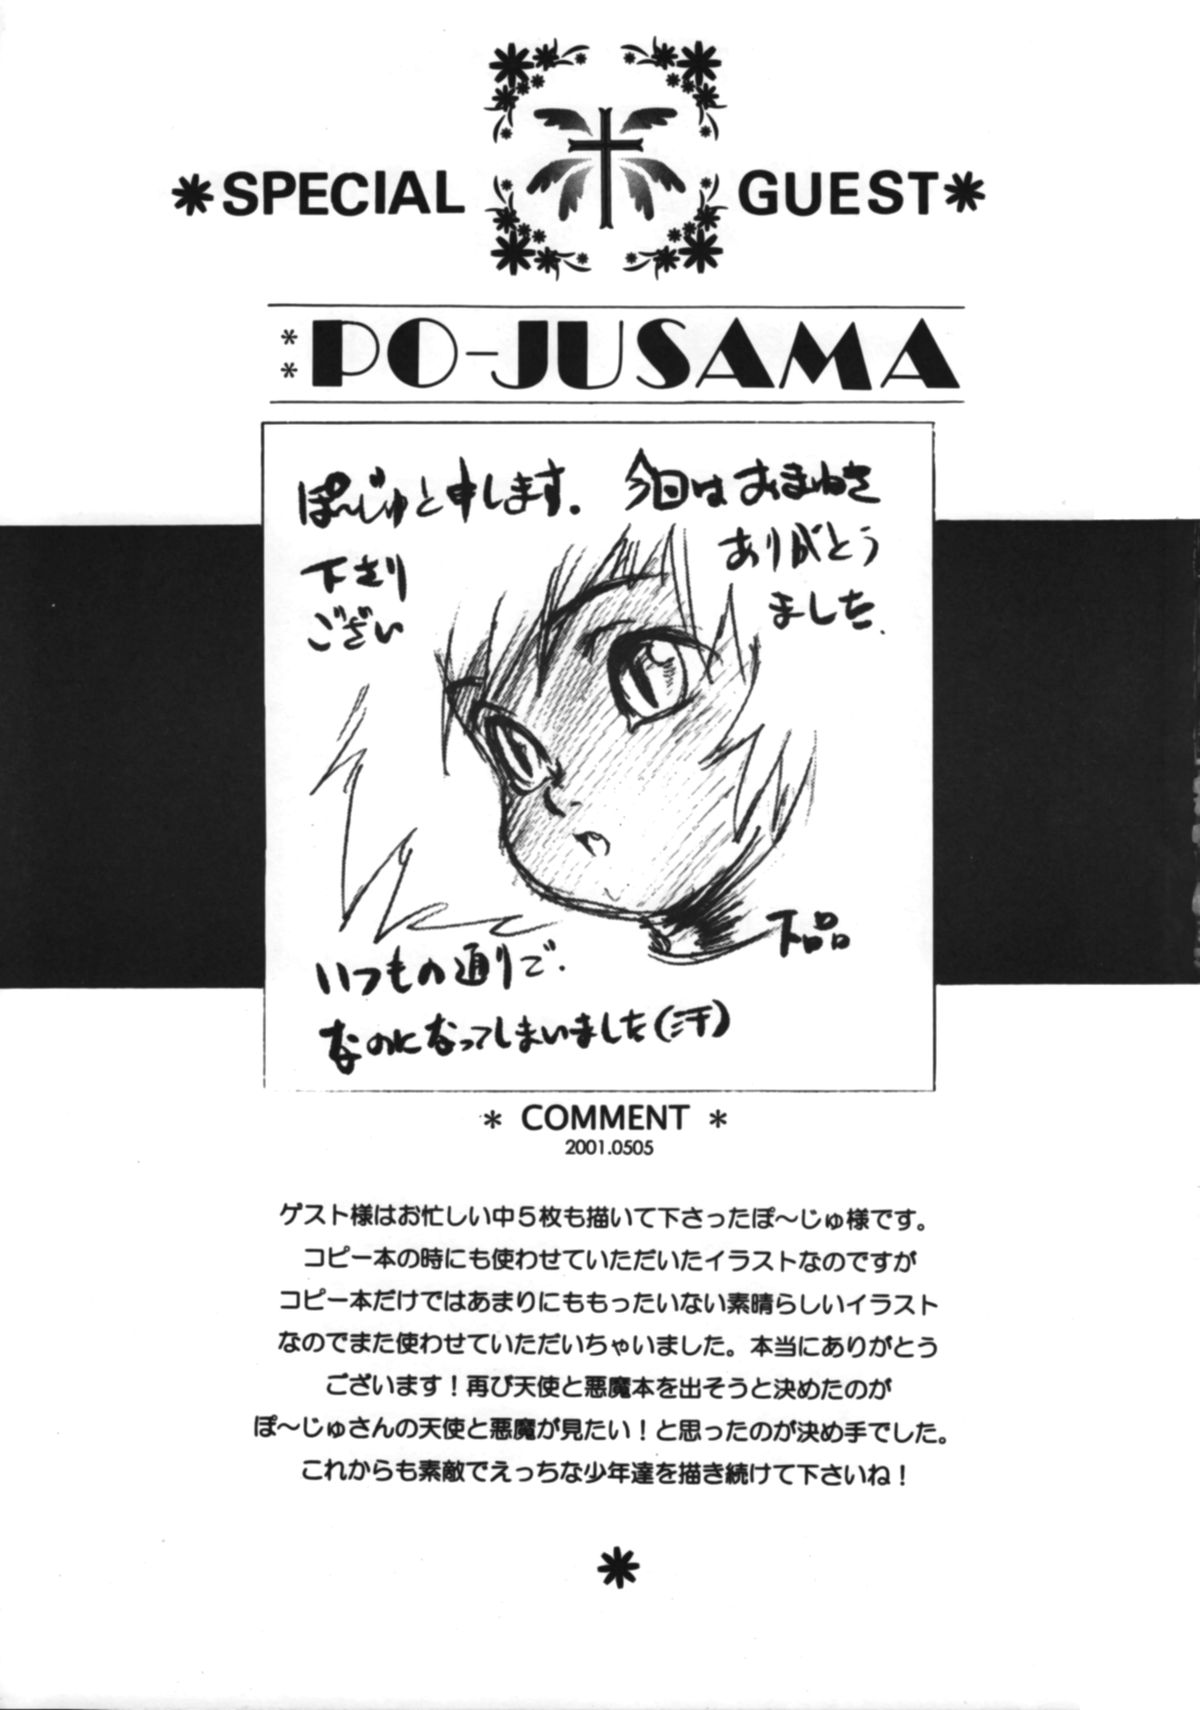 *SPECIAL GUEST*
** PO-JUSAMA
ぽ〜じゅと申します。今回はおまねき
下さり ありがとう
ござい ました.
下品
いつもの通りで.
なのになってしまいました(汗)
* COMMENT *
2001.0505
ゲスト様はお忙しい中5枚も描いて下さったぽ〜じゅ様です。
コピー本の時にも使わせていただいたイラストなのですが
コピー本だけではあまりにももったいない素晴らしいイラスト
なのでまた使わせていただいちゃいました。本当にありがとう
ございます!再び天使と悪魔本を出そうと決めたのが
ぽ〜じゅさんの天使と悪魔が見たい!と思ったのが決め手でした。
これからも素敵でえっちな少年達を描き続けて下さいね!